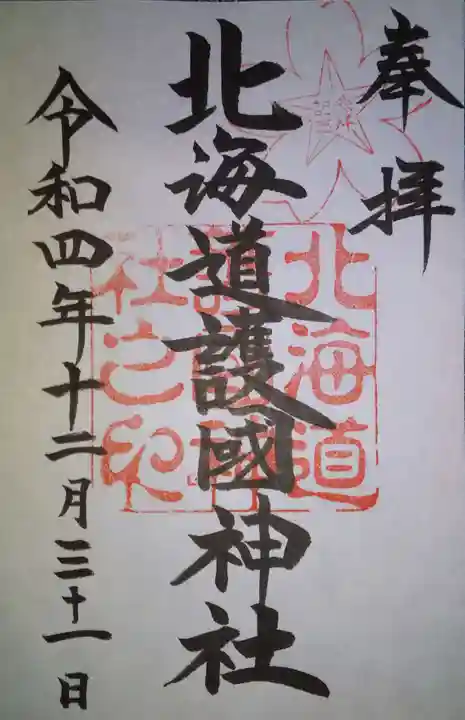 奉拝
北海道護國神社
令和四年十二月三十一日
北海道
護國神
社之印